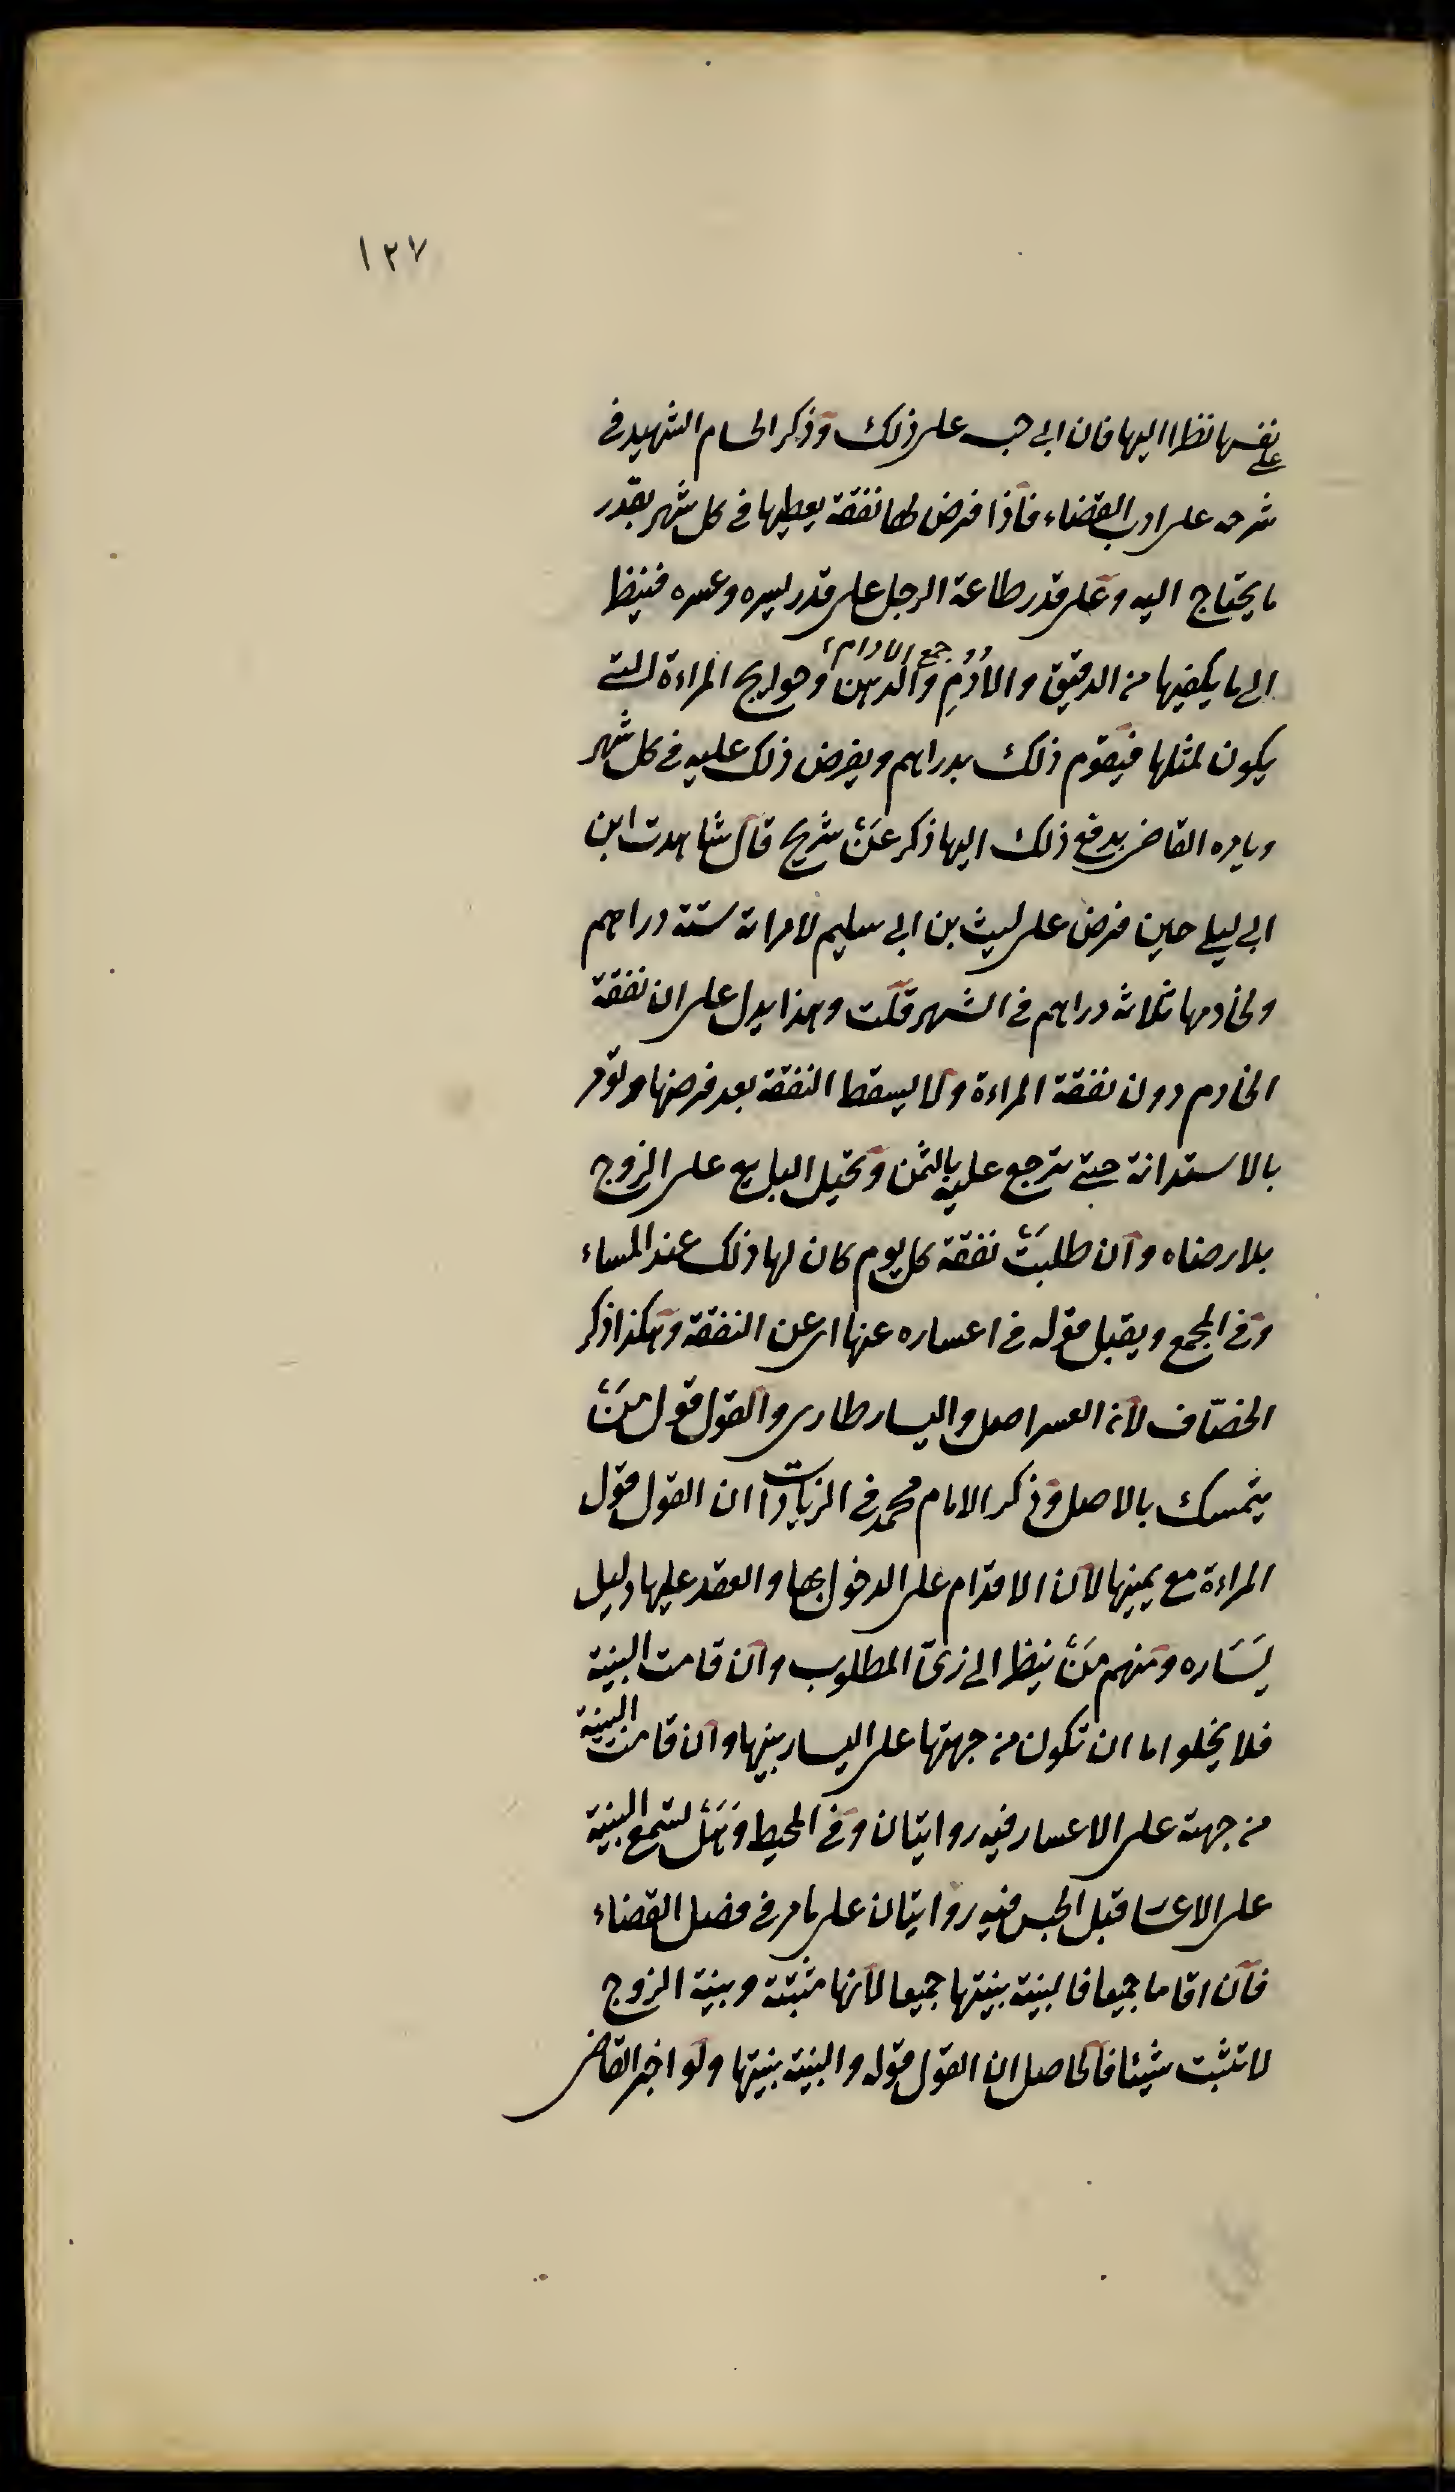 ١٢٧
على نفسها نظرا اليها فان ابى حبسه على ذلك وذكر الحسام الشهيد في
شرحه على ادب القضاء فاذا فرض لها نفقة يعطيها في كل شهر بقدر
ما يحتاج اليه وعلى قدر طاعة الرجل على قدر يسره وعسره فينظر
الى ما يكفيها من الدقيق والأدُمِ والدهن وحوايج المراءة التي
جمع الادام
يكون لمثلها فيقوم ذلك بدراهم ويفرض ذلك عليه في كل شهر
ويامره القاضى بدفع ذلك اليها ذكر عَنْ شريح قال شاهدت ابن
ابي ليلى حين فرض على ليث بن ابي سليم لامراته ستة دراهم
ولخادمها ثلاثة دراهم في الشهر قلت وهذا يدل على ان نفقة
الخادم دون نفقة المراءة ولا يسقط النفقة بعد فرضها وتؤمر
بالاستدانة حتى ترجع عليه بالثمن وتحيل البايع على الزوج
بلا رضاه وان طلبَتْ نفقة كل يوم كان لها ذلك عند المساء
وفي المجمع ويقبل قوله في اعساره عنها اى عن النفقة وهكذا ذكر
الخصّاف لانه العسر اصل واليسار طارى والقول قول مَنْ
يتمسك بالاصل وذكر الامام محمد في الزيادات ان القول قول
المراءة مع يمينها لان الاقدام على الدخول بها والعقد عليها دليل
يَسَاره ومنهم مَنْ ينظر الى زىّ المطلوب وان قامت البينة
فلا يخلوا اما ان تكون من جهتها على اليسار بينها وان قامت البينة
من جهته على الاعسار فيه روايتان وفي المحيط وهَلْ تسمع البينة
على الاعسار قبل الحبس فيه روايتان على ما مر في فصل القضاء
فان اقاما جميعا فالبينة بينتها جميعا لانها مثبتة وبينة الزوج
لا تثبت شيئا فالحاصل ان القول قوله والبينة بينتها ولو اخبر القاضى